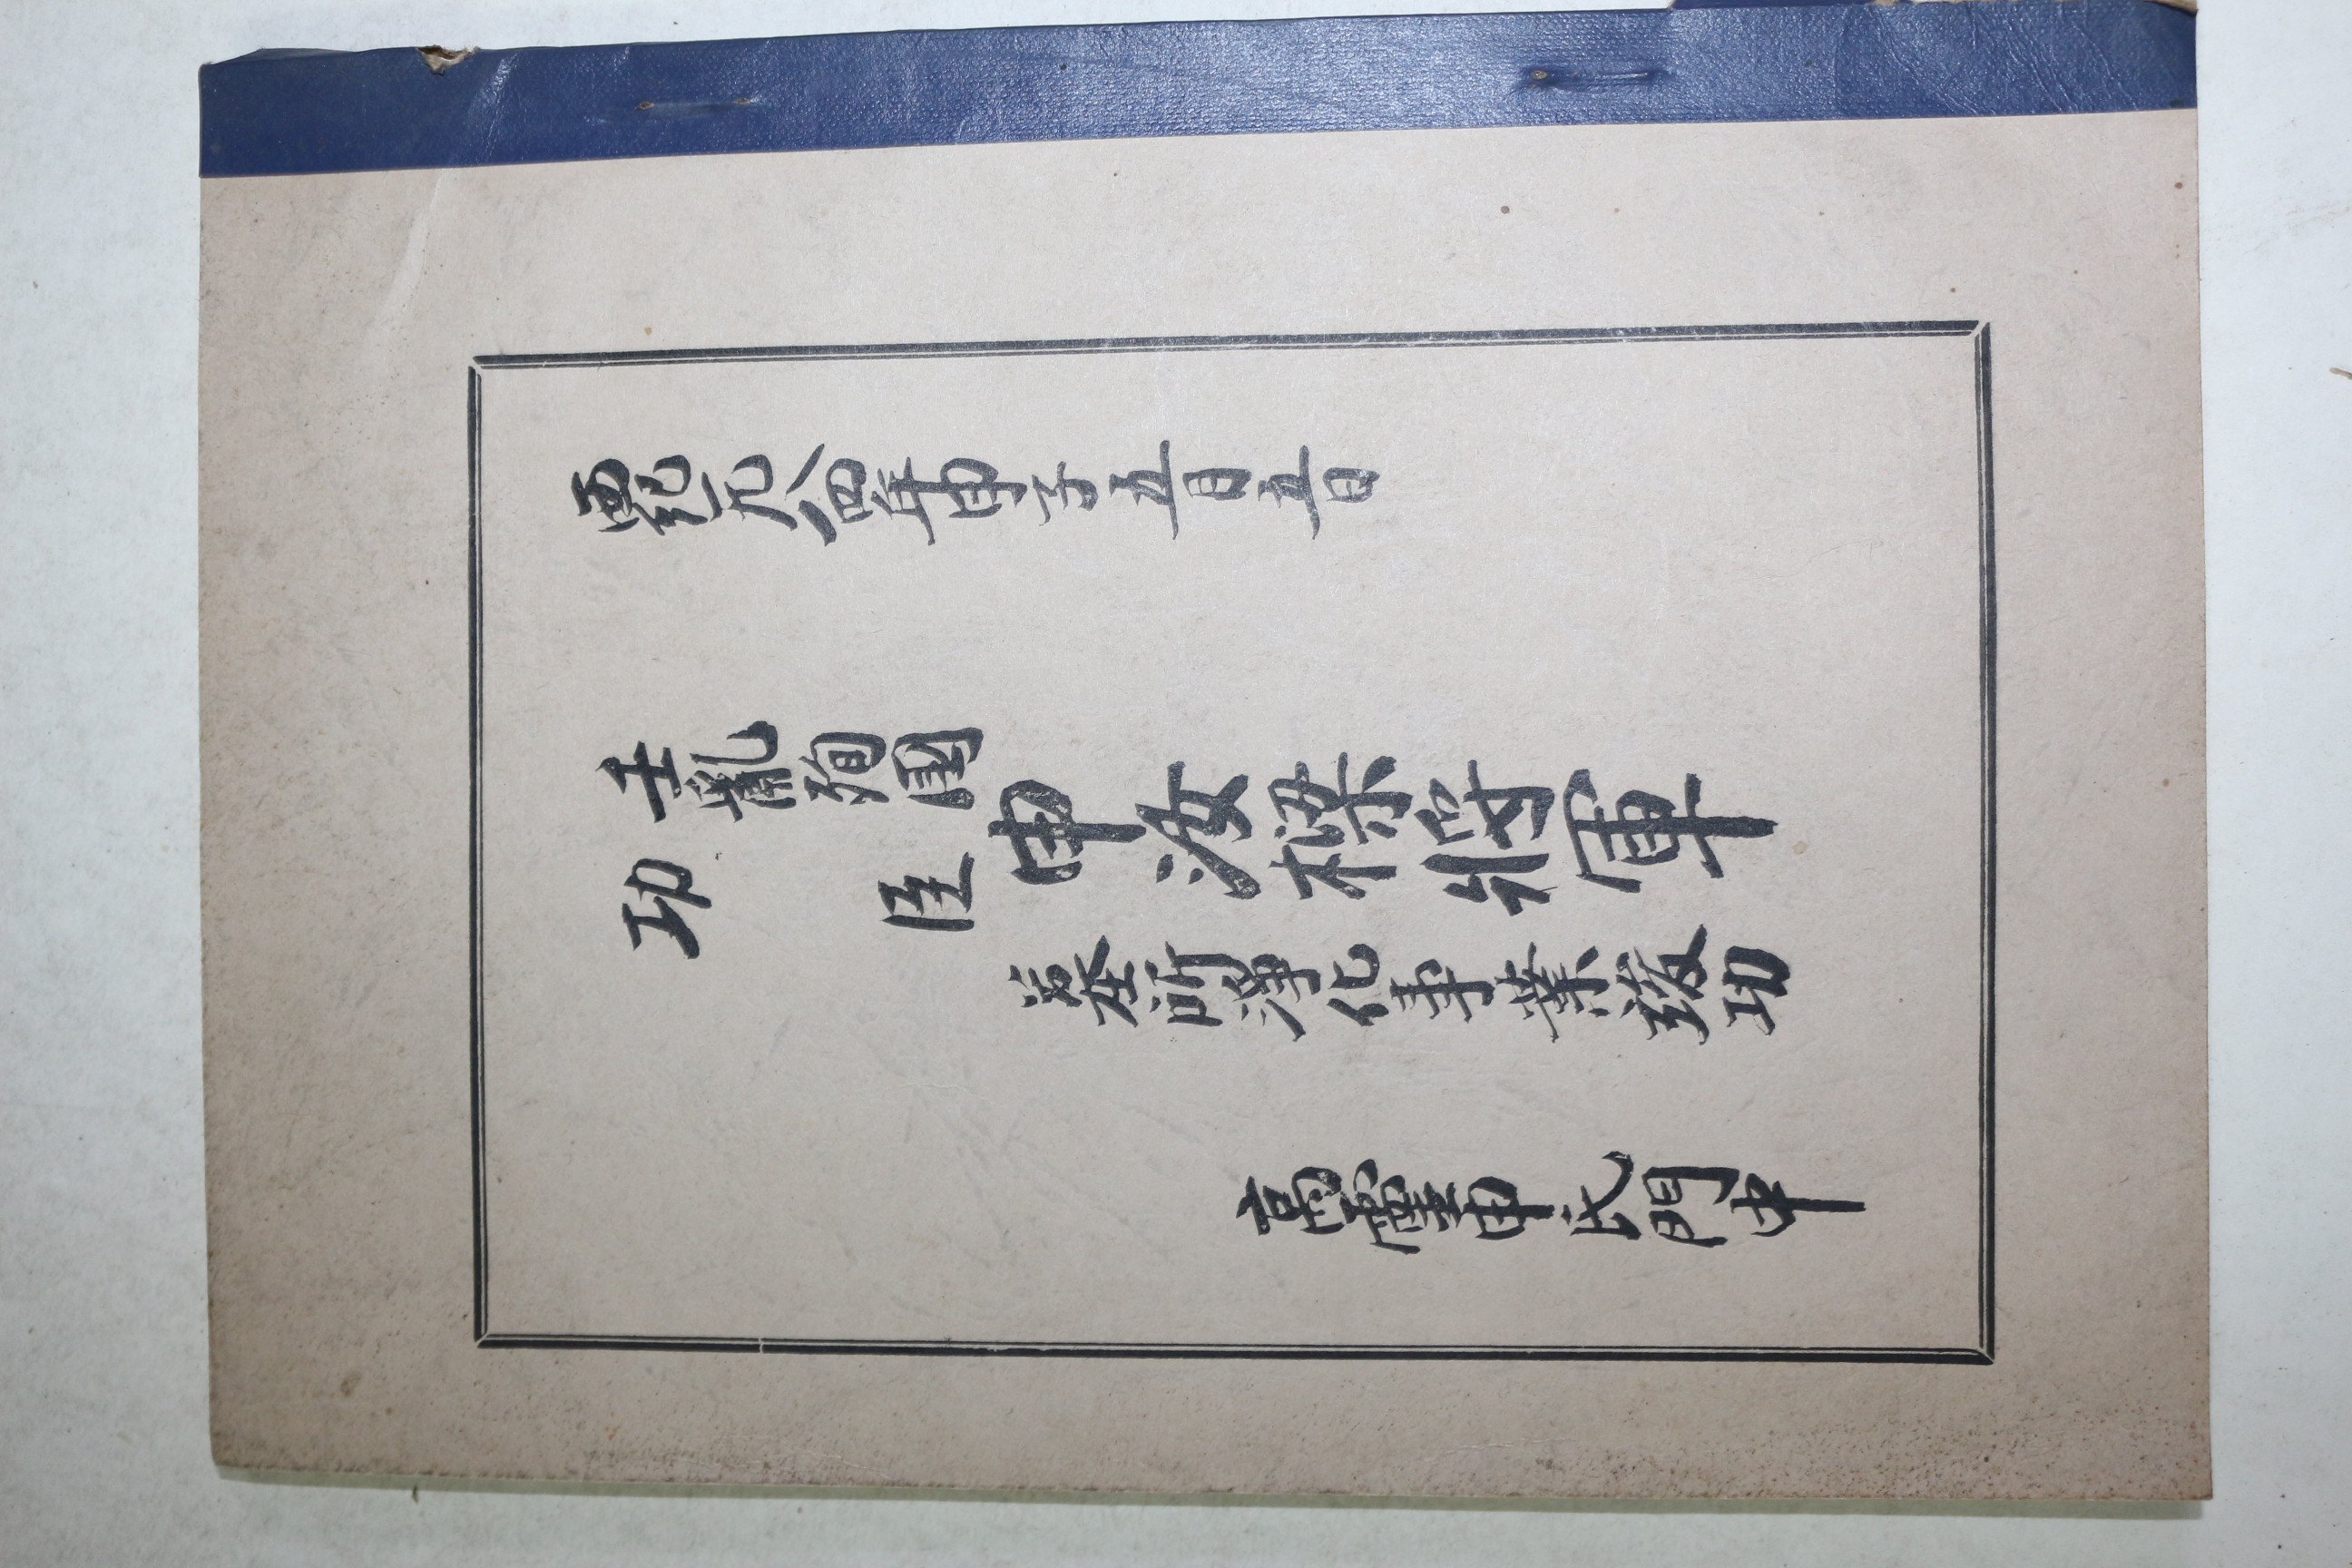 西紀一九八四年甲子五月五日
壬亂殉國
功臣
申汝樑將軍
墓所淨化事業竣功
高靈申氏門中